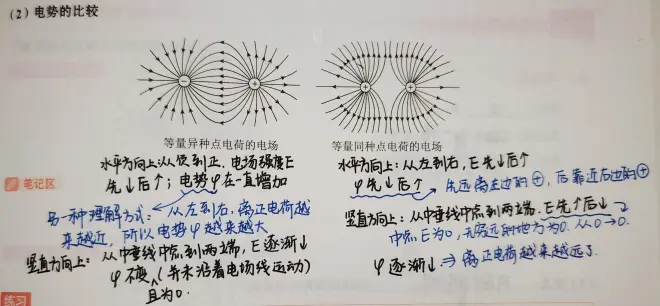 (2) 电势的比较
等量异种点电荷的电场
等量同种点电荷的电场
笔记区
水平方向上:从负到正,电场强度E
先↓后↑;电势φ在一直增加
另一种理解方式:从左到右,离正电荷越
来越近,所以电势φ越来越大
竖直方向上:从中垂线中点到两端,E逐渐↓
φ不变(并未沿着电场线运动)
且为0.
水平方向上:从左到右,E先↓后↑
φ先↓后↑ 先远离左边的⊕,后靠近右边的⊕
竖直方向上:从中垂线中点到两端,E先↑后↓
中点E为0,无穷远的地方为0.从0→0.
φ逐渐↓⇒离正电荷越来越远了
练习